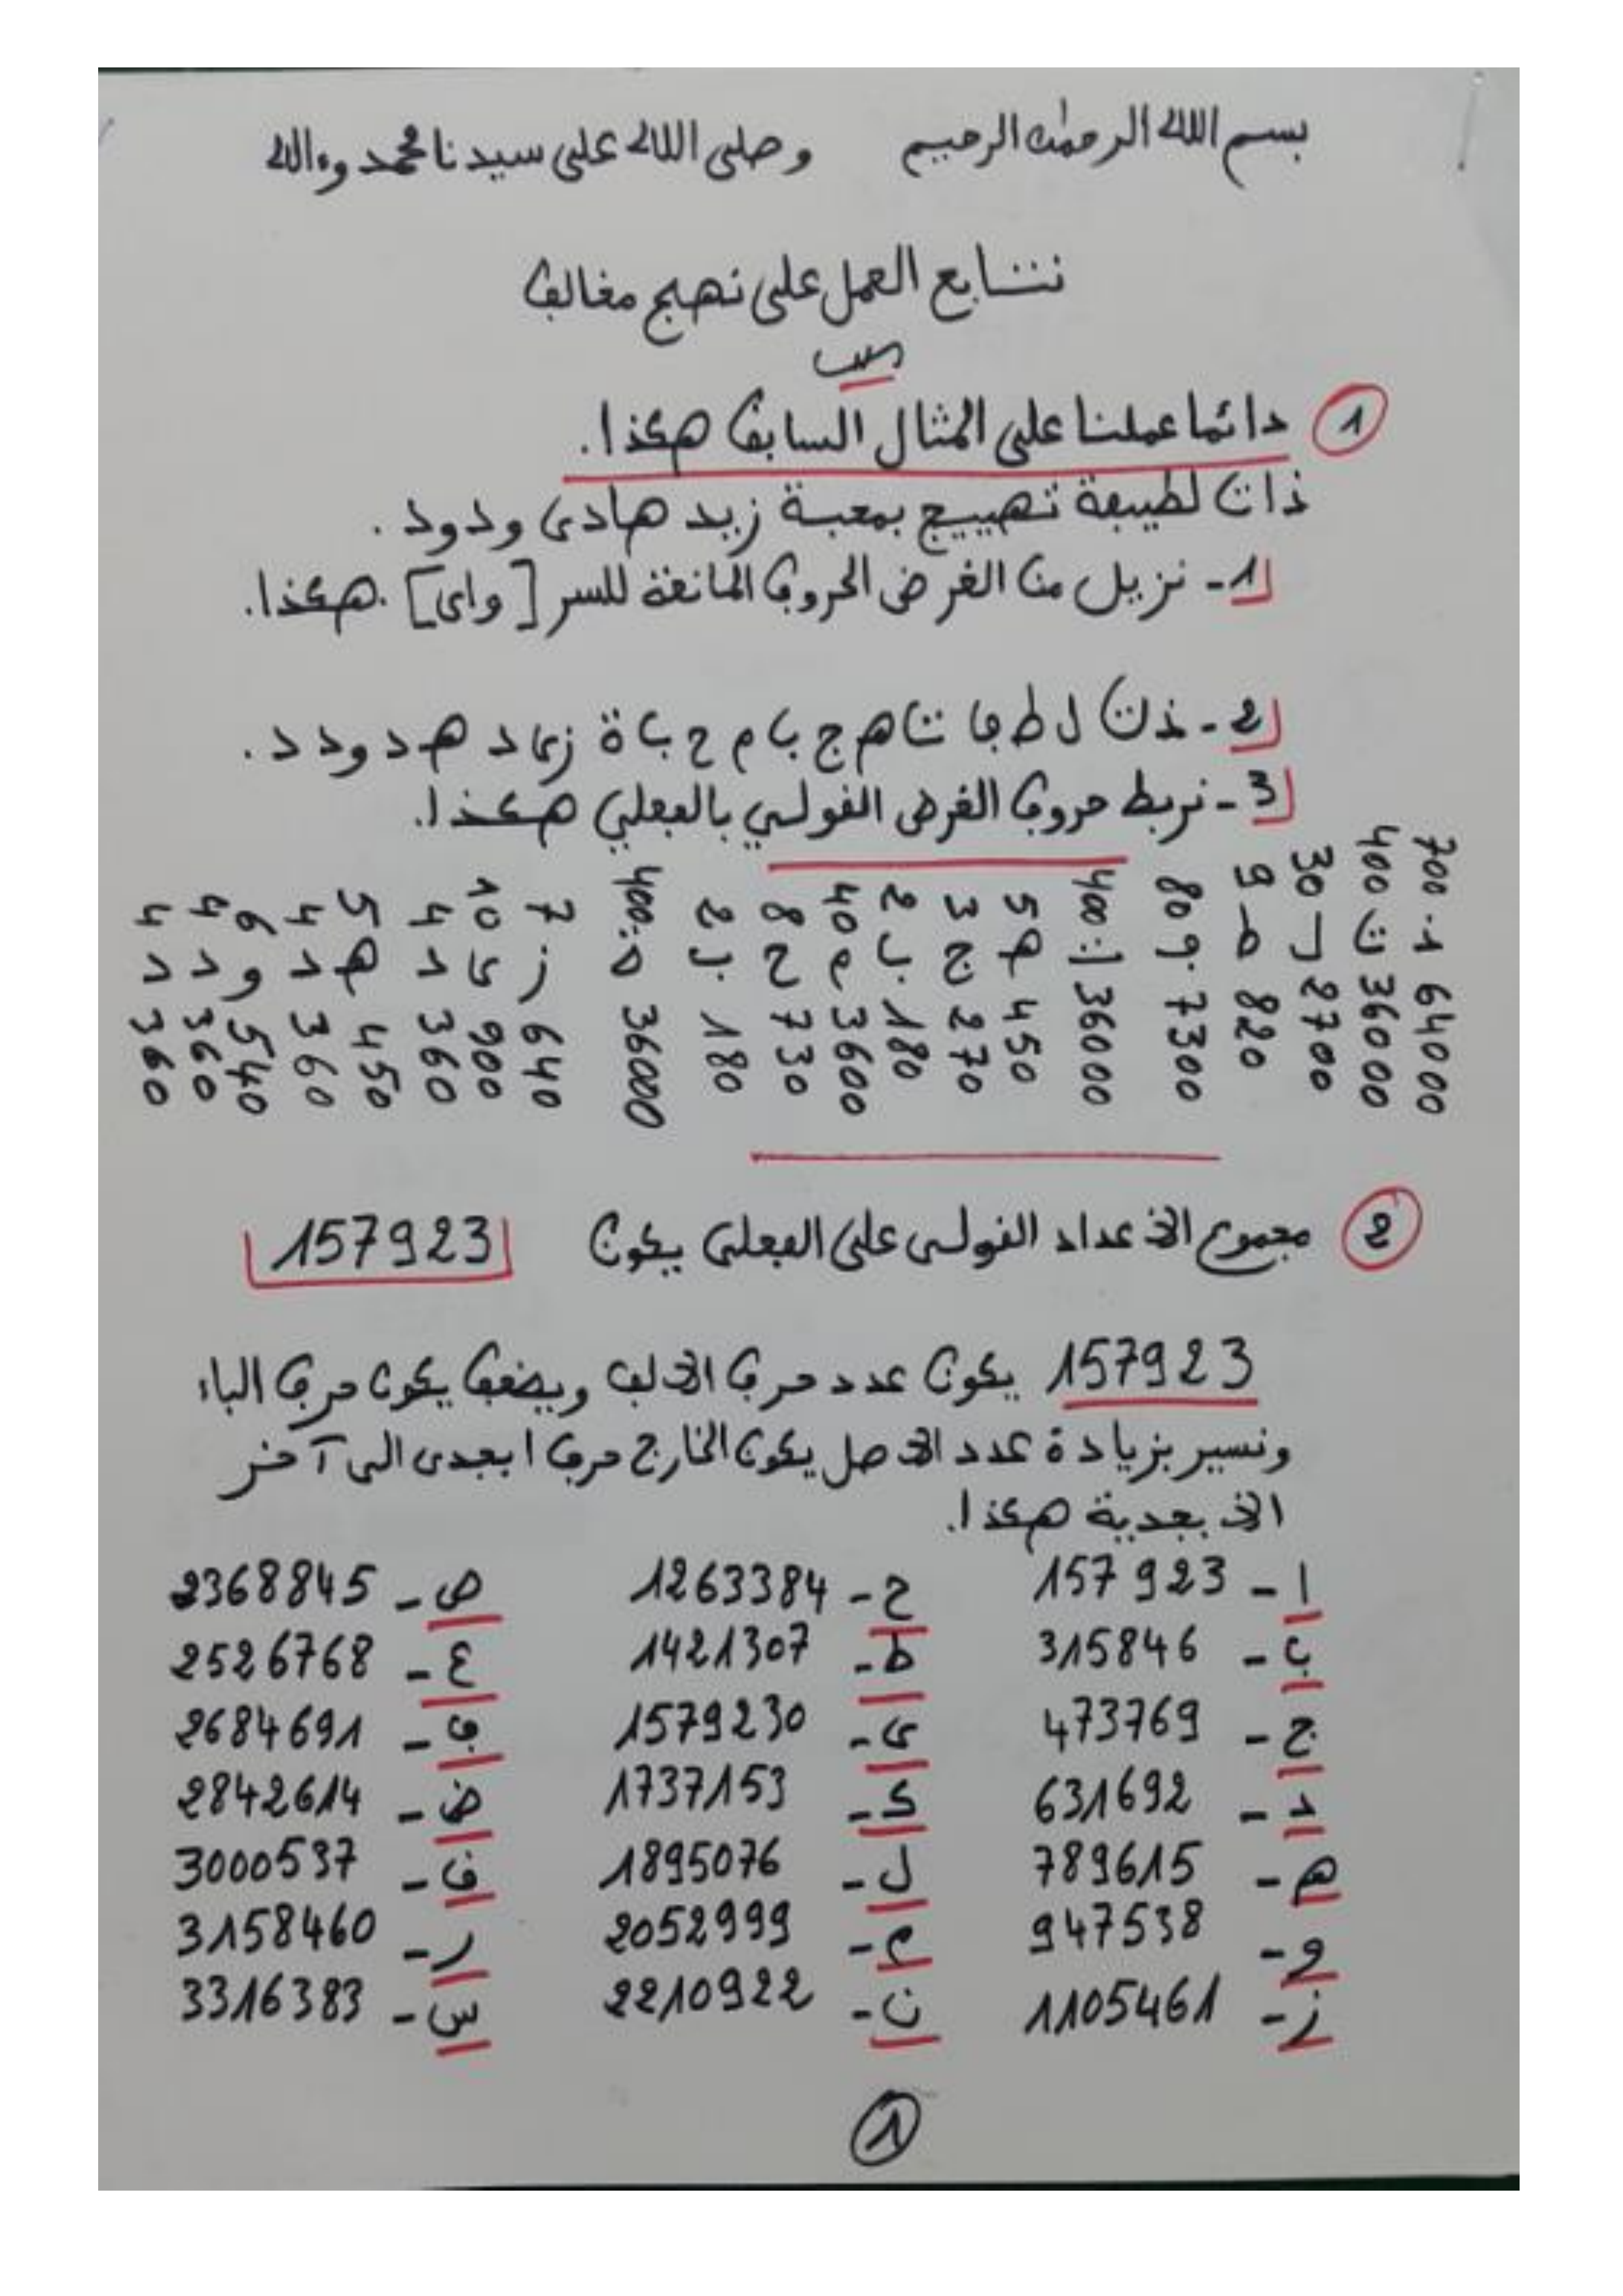 بسم الله الرحمٰن الرحيم وصلى الله على سيدنا محمد وءاله
نتتابع العمل على نهج مغالف
1 دائما عملنا على المثال السابق هكذا.
ذات لطيفة تهييج بمحبة زيد هادى ودود.
1- نزيل من الغرض الحروف المانعة للسر [واى]. هكذا.
2- ذت ل ط ف ة ت ه ج ب م ح ب ة ز ى د ه د و د د.
3- نربط حروف الغرض القولي بالفعلي هكذا.
700 400 30 9 80 400 5 3 2 40 8 2 400 7 10 4 5 4 6 4 4
ذ ت ل ط ف ت ه ج ب م ح ب ة ز ى د ه د و د د
64000 36000 2700 820 7300 36000 450 270 180 3600 730 180 36000 640 900 360 450 360 540 360 360
2 مجموع الاعداد القولى على الفعلى يكون 157923
157923 يكون عدد حرف الالف وبضعف يكون حرف الباء
ونسير بزيادة عدد الاصل يكون الخارج حرف ابجدى الى آخر
الابجدية هكذا.
ا - 157923 ح - 1263384 ص - 2368845
ب - 315846 ط - 1421307 ع - 2526768
ج - 473769 ى - 1579230 ف - 2684691
د - 631692 ك - 1737153 ض - 2842614
ه - 789615 ل - 1895076 ق - 3000537
و - 947538 م - 2052999 ر - 3158460
ز - 1105461 ن - 2210922 س - 3316383
1